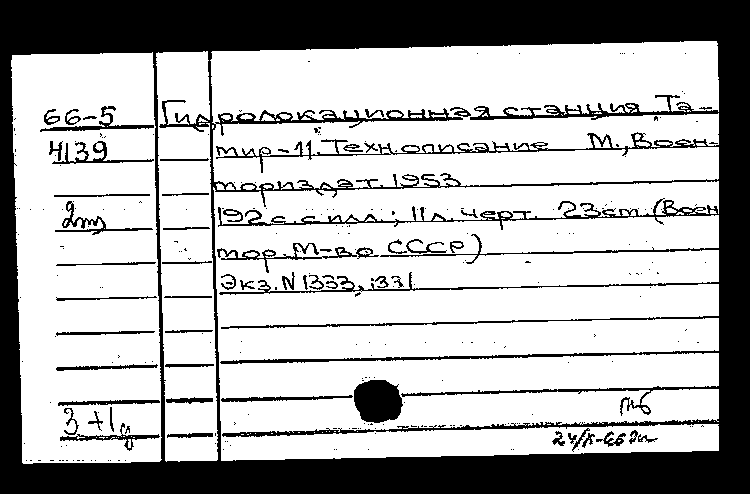 66-5 Гидролокационная станция "Та-
4139 мир-11". Техн. описание М., Воен-
мориздат. 1953
192с. с илл.; 11л. черт. 23см. (Воен
мор. М-во СССР)
Экз. N 1333, 1331
3 + 1д